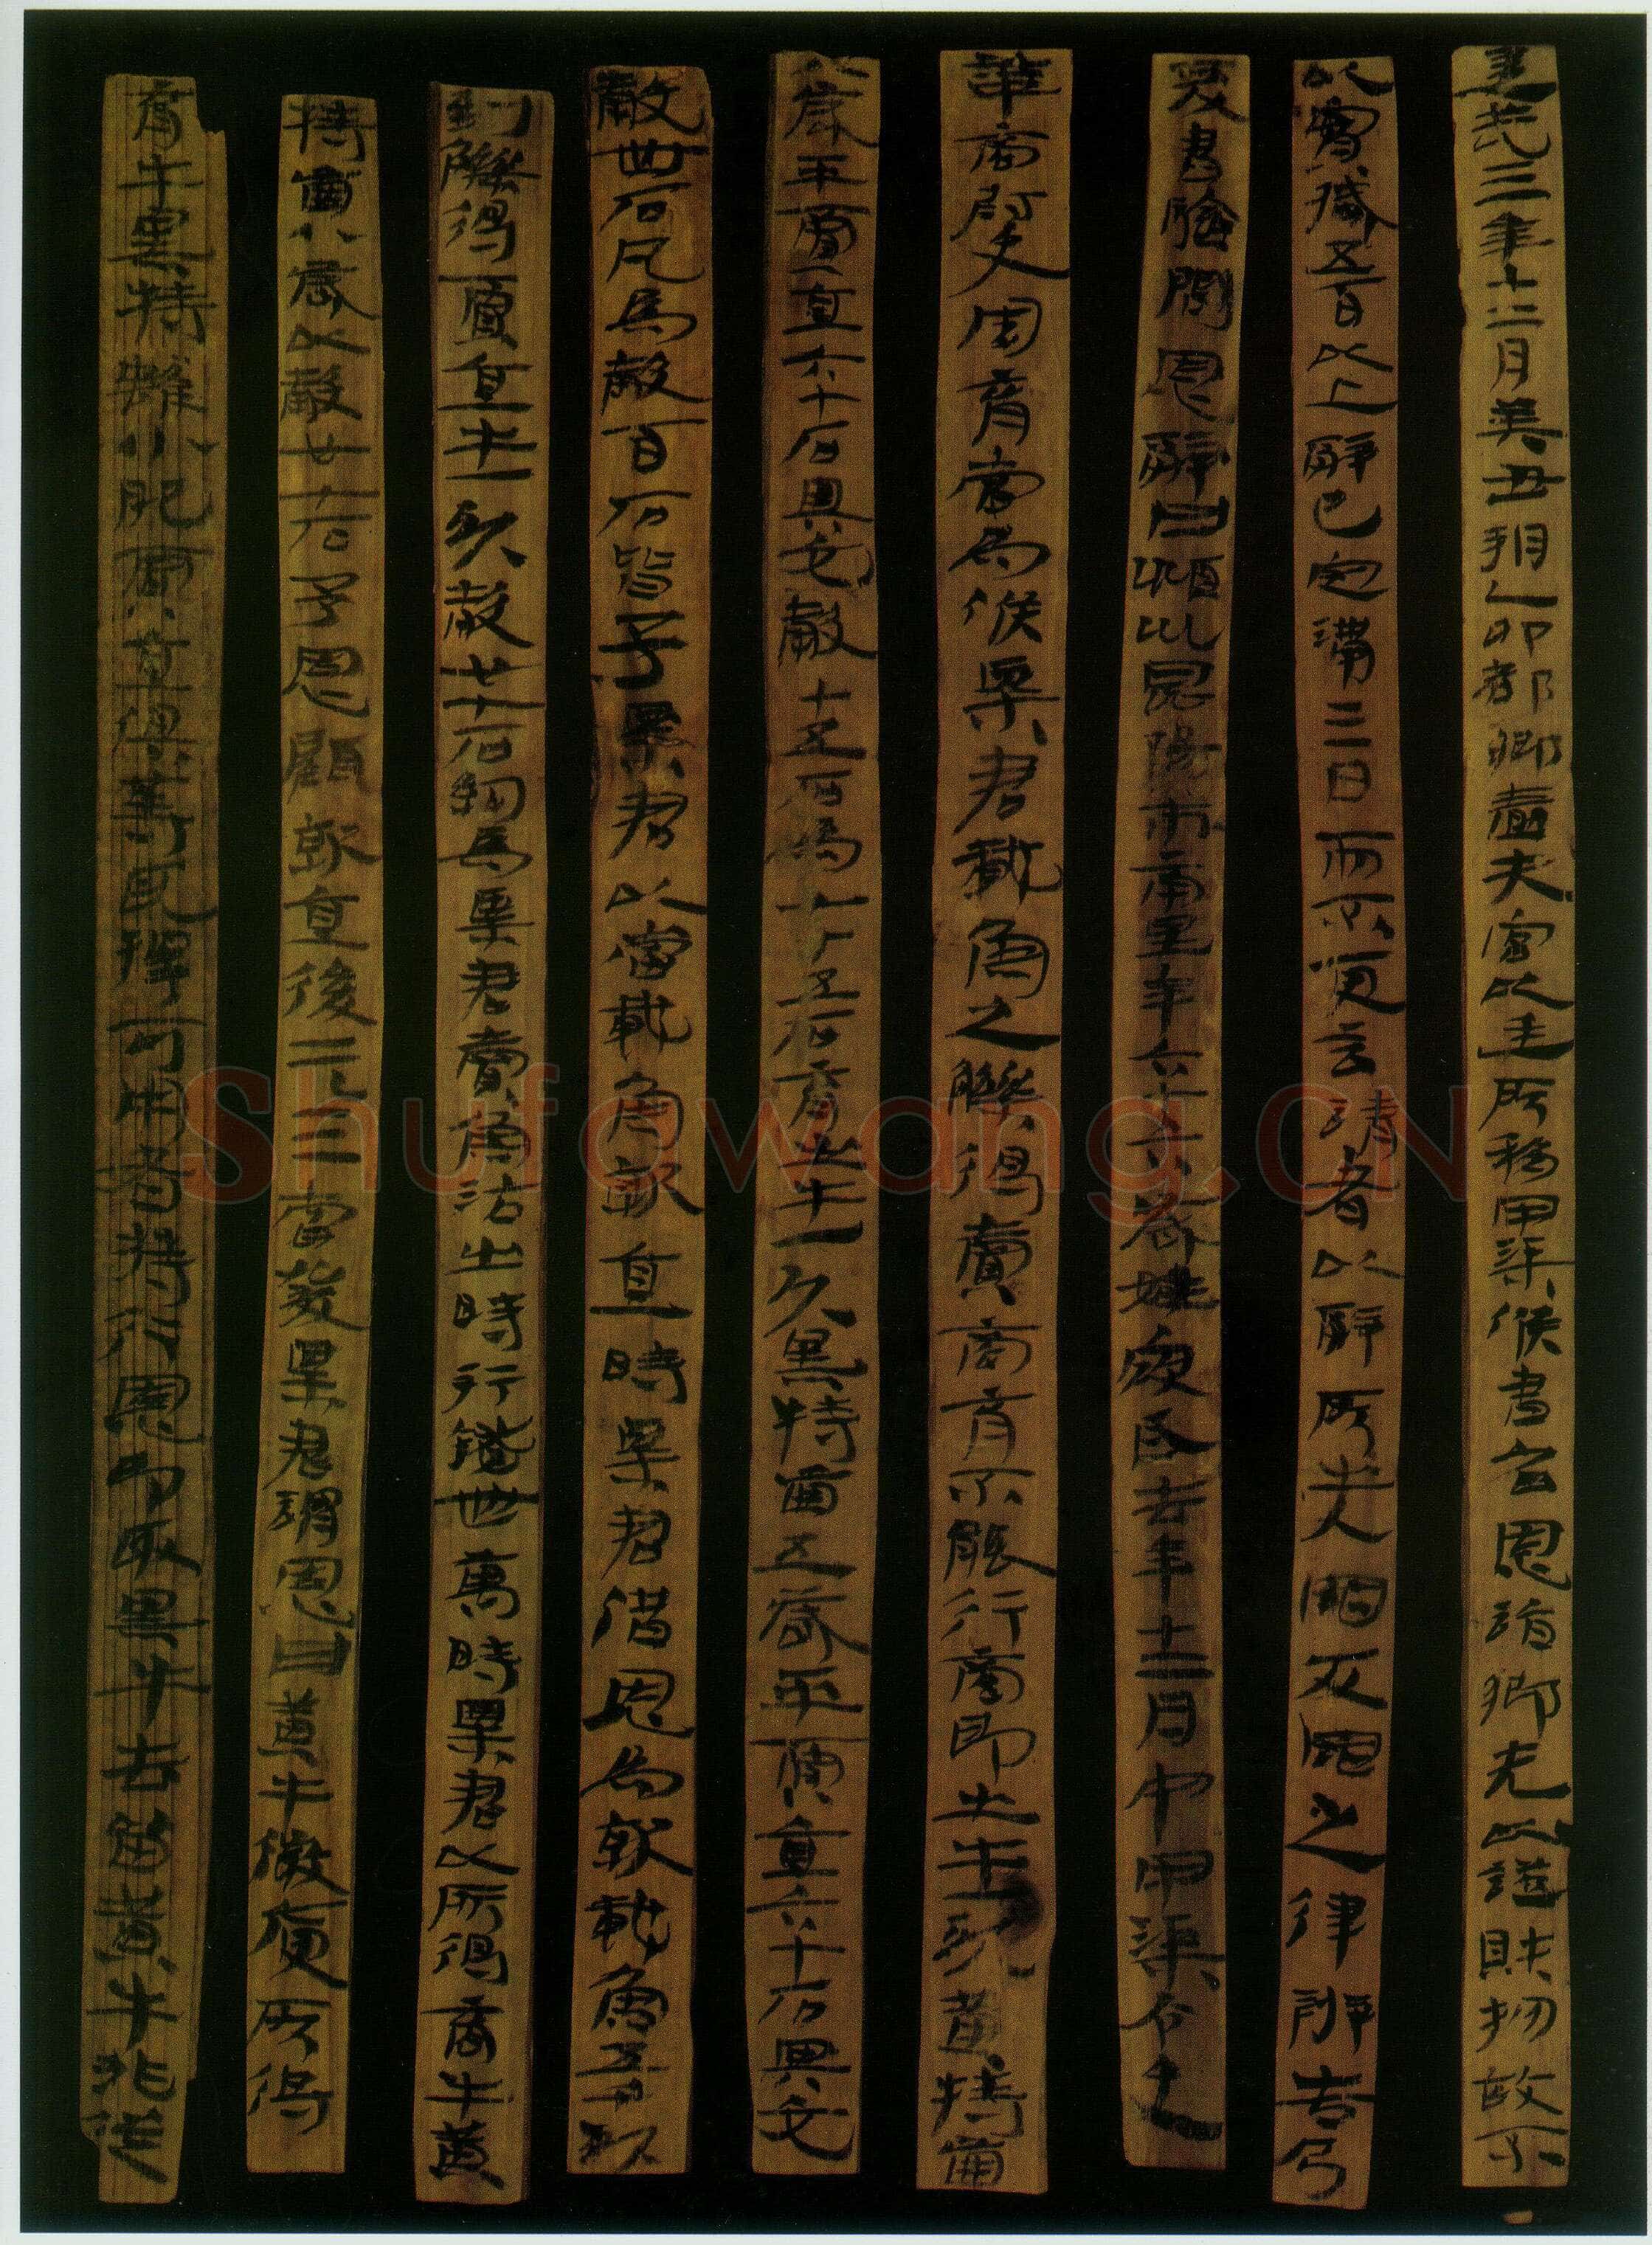 建武三年十二月癸丑朔乙卯都鄉嗇夫宮以廷所移甲渠候書召恩詣鄉先以證財物故不
以實臧五百以上辭已定滿三日而不更言請者以辭所出入罪反罪之律辨告乃
爰書驗問恩辭曰潁川昆陽市南里年六十六歲姓寇氏去年十二月中甲渠令史
華商尉史周育當為候粟君載魚之觻得賣商育不能行商即出牛一頭黃特齒
八歲平賈直六十石與交穀十五石為七十五石育出牛一頭黑特齒五歲平賈直六十石與交
穀卌石凡為穀百石皆予粟君以當載魚就直時粟君借恩為就載魚五千頭
到觻得賈直牛一頭穀廿七石約為粟君賣魚沽出時行錢卌萬時粟君以所得商牛黃
特齒八歲以穀廿七石予恩顧就直後二三日當發粟君謂恩曰黃牛微庾所得
育牛黑特雖小肥賈直俱等耳擇可用者持行恩即取黑牛去留黃牛非從
Shufawang.CN